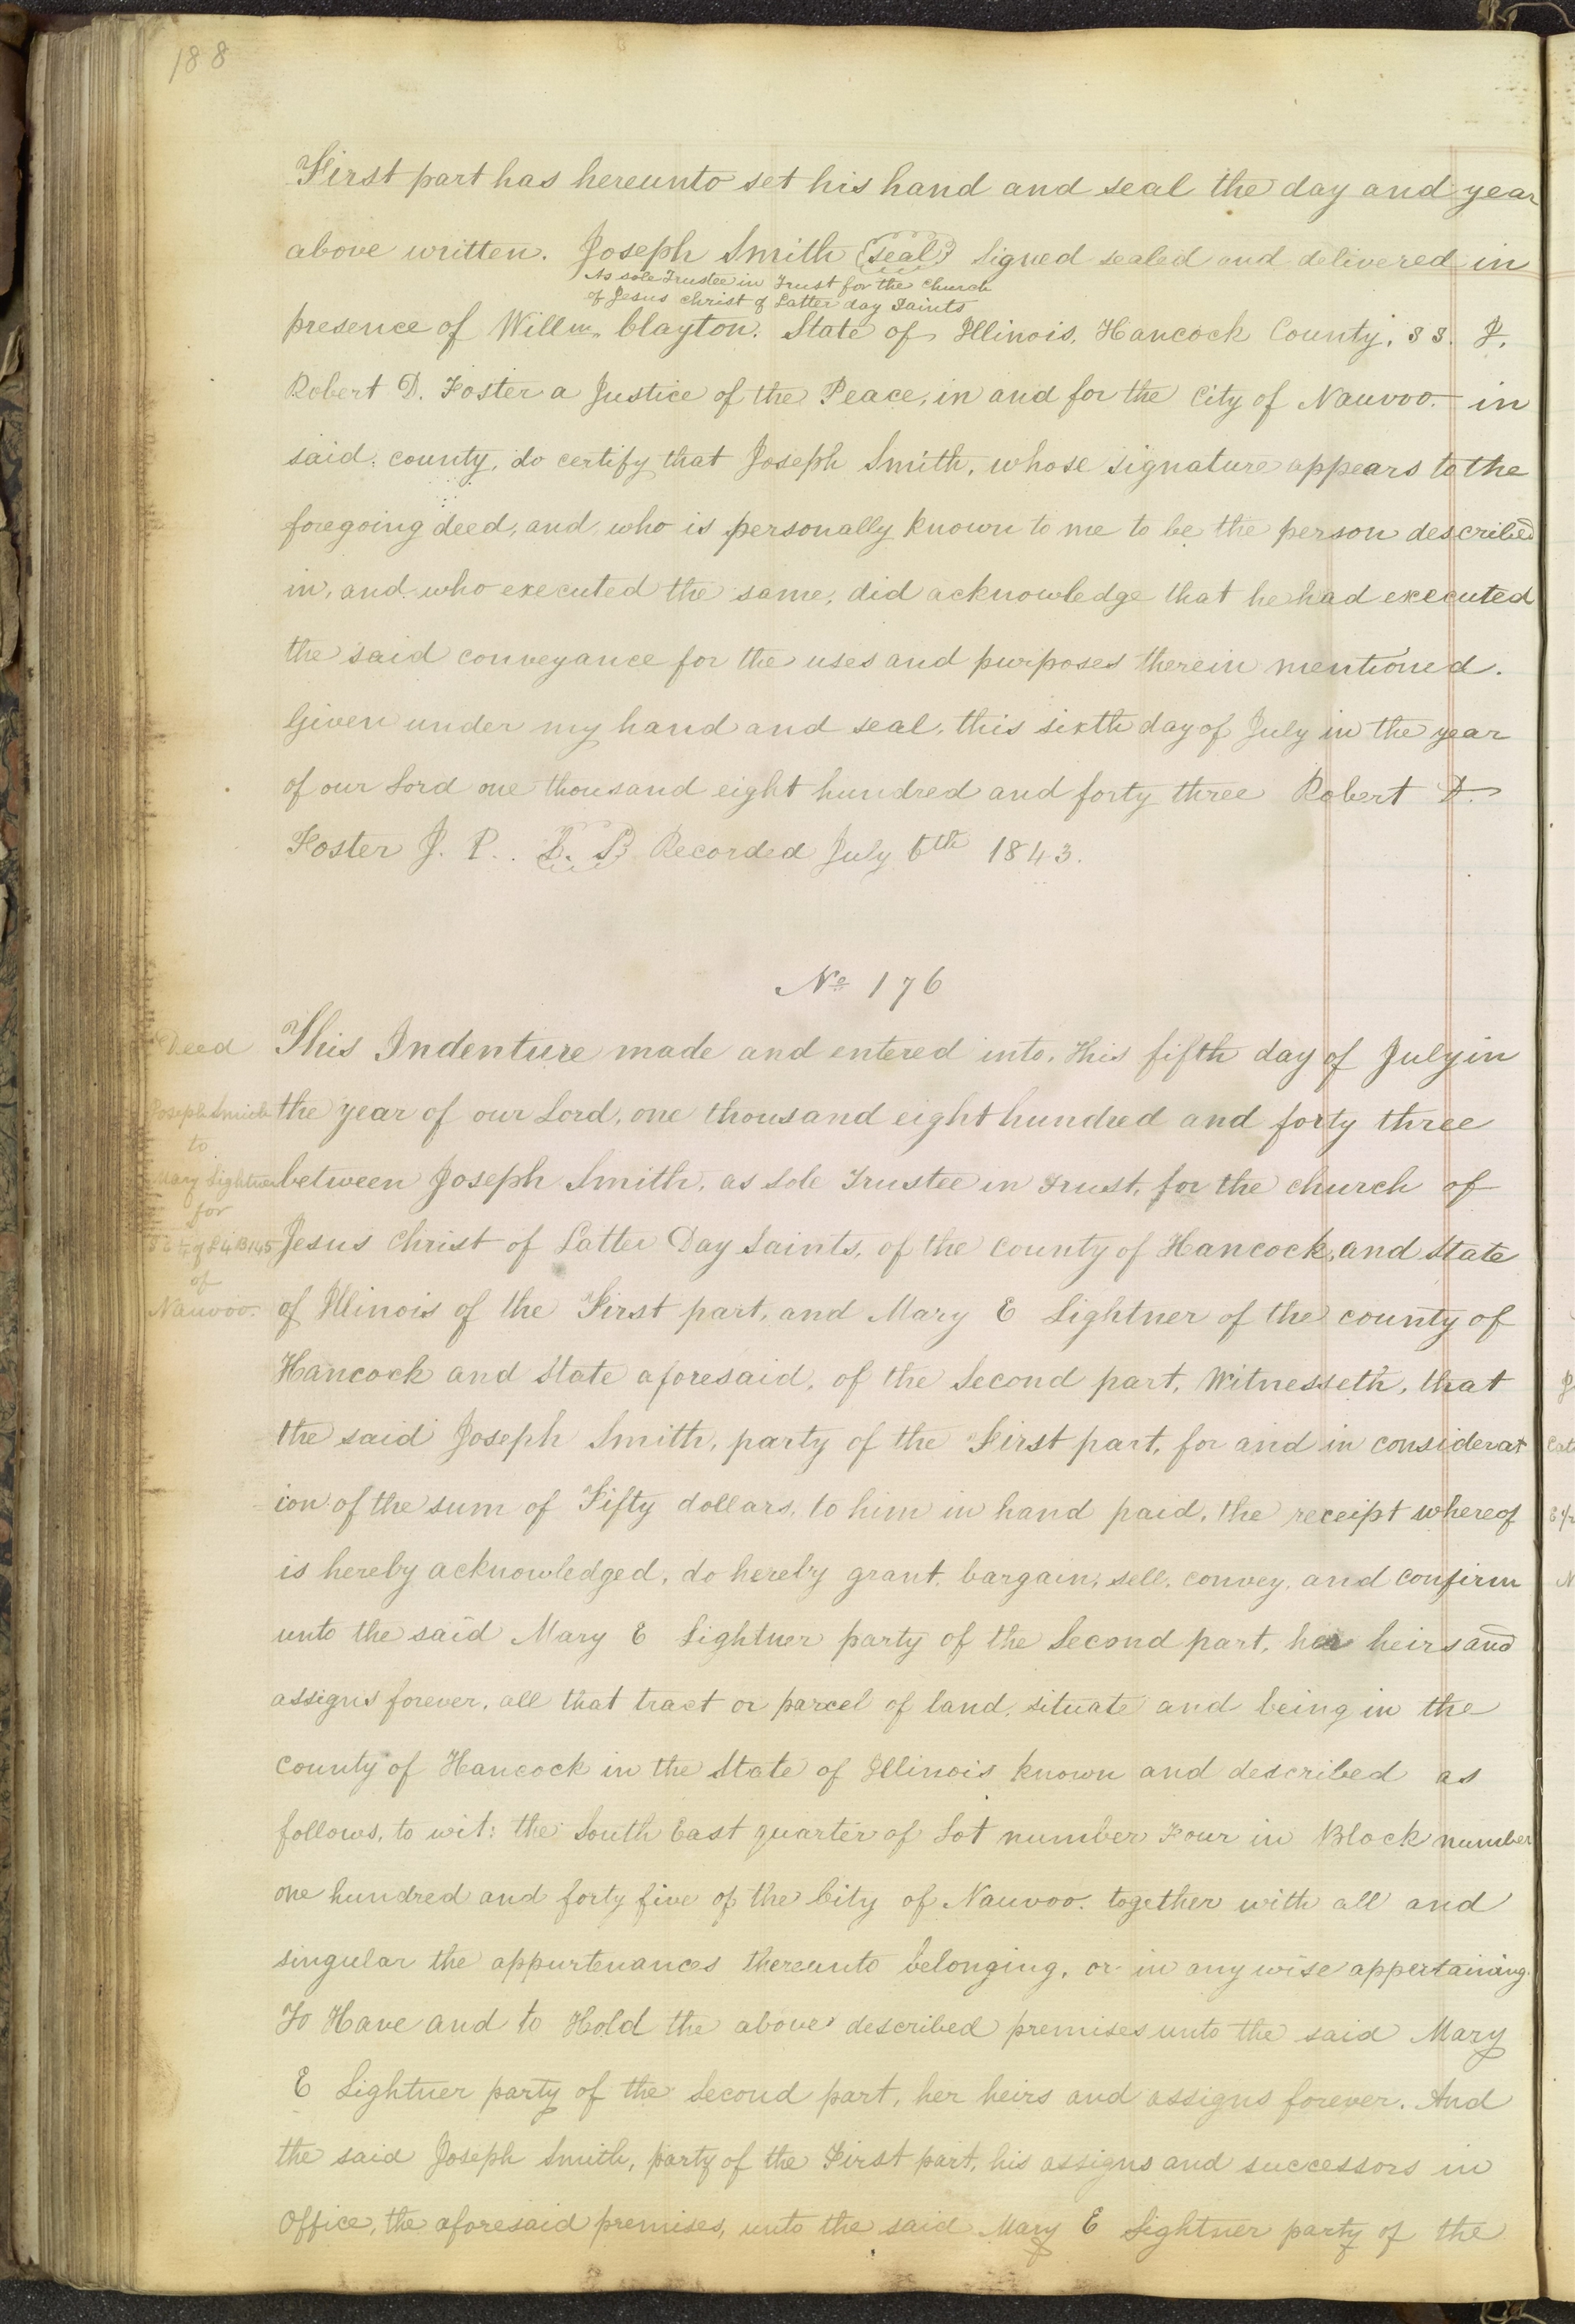 188
First part has hereunto set his hand and seal the day and year
above written. Joseph Smith (seal) Signed sealed and delivered in
As sole Trustee in Trust for the Church
of Jesus Christ of Latter day Saints
presence of Willm. Clayton. State of Illinois, Hancock County, SS. I,
Robert D. Foster a Justice of the Peace, in and for the City of Nauvoo. in
said county, do certify that Joseph Smith, whose signature appears to the
foregoing deed, and who is personally known to me to be the person described
in, and who executed the same, did acknowledge that he had executed
the said conveyance for the uses and purposes therein mentioned.
Given under my hand and seal, this sixth day of July in the year
of our Lord one thousand eight hundred and forty three Robert D.
Foster J. P. L. S. Recorded July 6th 1843.
No 176
Deed
Joseph Smith
to
Mary Lightner
for
S E ¼ of L 4 B 145
of
Nauvoo.
This Indenture made and entered into, this fifth day of July in
the year of our Lord, one thousand eight hundred and forty three
between Joseph Smith, as Sole Trustee in Trust, for the church of
Jesus Christ of Latter Day Saints, of the county of Hancock, and State
of Illinois of the First part, and Mary E Lightner of the county of
Hancock and State aforesaid, of the Second part, Witnesseth, that
the said Joseph Smith, party of the First part, for and in considerat
ion of the sum of Fifty dollars, to him in hand paid, the receipt whereof
is hereby acknowledged, do hereby grant, bargain, sell, convey, and confirm
unto the said Mary E Lightner party of the Second part, her heirs and
assigns forever, all that tract or parcel of land, situate and being in the
county of Hancock in the State of Illinois known and described as
follows, to wit: the South East quarter of Lot number Four in Block number
one hundred and forty five of the City of Nauvoo. together with all and
singular the appurtenances thereunto belonging, or in any wise appertaining.
To Have and to Hold the above described premises unto the said Mary
E Lightner party of the Second part, her heirs and assigns forever. And
the said Joseph Smith, party of the First part, his assigns and successors in
Office, the aforesaid premises, unto the said Mary E Lightner party of the